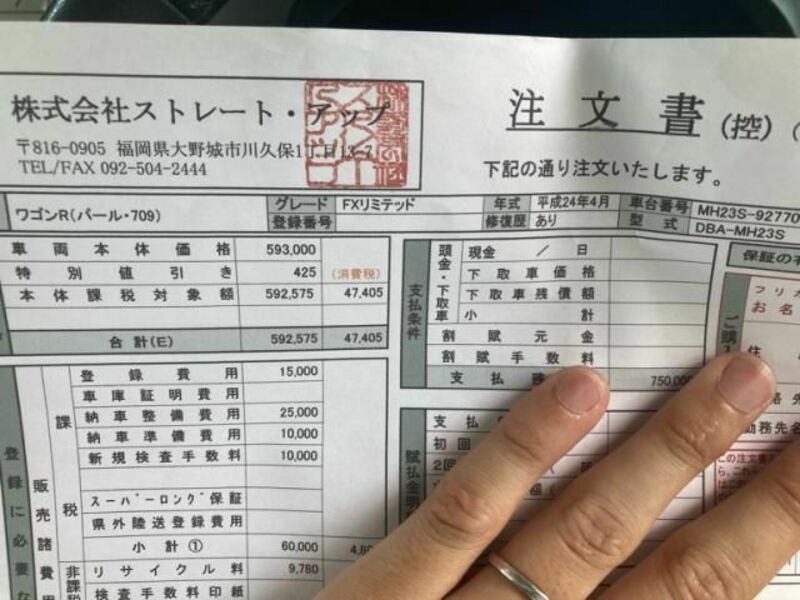 株式会社ストレート・アップ
〒816-0905 福岡県大野城市川久保1丁目13-7
TEL/FAX 092-504-2444
注文書(控)
下記の通り注文いたします。
ワゴンR(パール・709)
グレード FXリミテッド 年式 平成24年4月 車台番号 MH23S-92770
登録番号 修復歴 あり 型式 DBA-MH23S
車両本体価格 593,000
特別値引き 425 (消費税)
本体課税対象額 592,575 47,405
合計(E) 592,575 47,405
支払条件
頭金・下取車
現金 / 日
下取車価格
下取車残債額
小計
割賦元金
割賦手数料
支払残 750,000
保証の有
フリガ
お名
ご購
住
賦払金明
支払
初回
2回
絡先
勤務先名
この注文書
登録に必要な
販売諸費用
課税
登録費用 15,000
車庫証明費用
納車整備費用 25,000
納車準備費用 10,000
新規検査手数料 10,000
スーパーロング保証
県外陸送登録費用
小計① 60,000 4,80
非課税
リサイクル料 9,780
検査手数料印紙